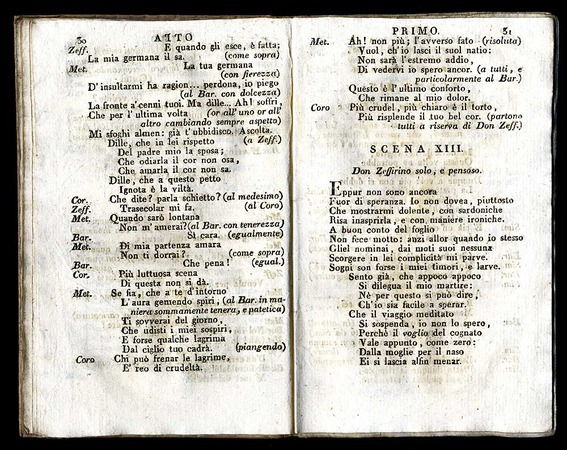 30
ATTO
Zeff. E quando gli esce, è fatta;
La mia germana il sa. (come sopra)
Met. La tua germana
(con fierezza)
D'insultarmi ha ragion... perdona, io piego
(al Bar. con dolcezza)
La fronte a' cenni tuoi. Ma dille... Ah! soffri,
Che per l'ultima volta (or all' uno or all'
altro cambiando sempre aspetto)
Mi sfoghi almen: già t'ubbidisco. Ascolta.
Dille, che in lei rispetto (a Zeff.)
Del padre mio la sposa;
Che odiarla il cor non osa,
Che amarla il cor non sa.
Dille, che a questo petto
Ignota è la viltà.
Cor. Che dite? parla schietto? (al medesimo)
Zeff. Trasecolar mi fa. (al Coro)
Met. Quando sarò lontana
Non m'amerai? (al Bar. con tenerezza)
Bar. Sì cara. (egualmente)
Met. Di mia partenza amara
Non ti dorrai? (come sopra)
Bar. Che pena! (egual.)
Cor. Più luttuosa scena
Di questa non si dà.
Met. Se fia, che a te d'intorno
L'aura gemendo spiri, (al Bar. in ma-
niera sommamente tenera, e patetica)
Ti sovverai del giorno,
Che udisti i miei sospiri,
E forse qualche lagrima
Dal ciglio tuo cadrà. (piangendo)
Coro Chi può frenar le lagrime,
E' reo di crudeltà.
PRIMO.
31
Met. Ah! non più; l'avverso fato (risoluta)
Vuol, ch'io lasci il suol natio:
Non sarà l'estremo addio,
Di vedervi io spero ancor. (a tutti, e
particolarmente al Bar.)
Questo è l'ultimo conforto,
Che rimane al mio dolor.
Coro Più crudel, più chiaro è il torto,
Più risplende il tuo bel cor. (partono
tutti a riserva di Don Zeff.)
SCENA XIII.
Don Zeffirino solo, e pensoso.
Eppur non sono ancora
Fuor di speranza. Io non dovea, piuttosto
Che mostrarmi dolente, con sardoniche
Risa inasprirla, e con maniere ironiche.
A buon conto del foglio
Non fece motto: anzi allor quando io stesso
Gliel nominai, dai moti suoi nessuna
Scorgere in lei complicità mi parve.
Sogni son forse i miei timori, e larve.
Sento già, che appoco appoco
Si dilegua il mio martire:
Nè per questo si può dire,
Ch'io sia facile a sperar.
Che il viaggio meditato
Si sospenda, io non lo spero,
Perchè il voglio del cognato
Vale appunto, come zero:
Dalla moglie per il naso
Ei si lascia alfin menar.